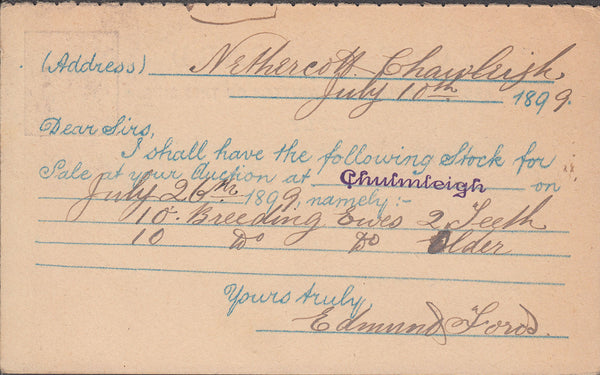 (Address) Nethercott Chawleigh
July 10th 1899.
Dear Sirs,
I shall have the following Stock for
Sale at your Auction at Chulmleigh on
July 26th 1899, namely:-
10 Breeding Ewes 2 Teeth
10 Do Do Older
Yours truly,
Edmund Ford.